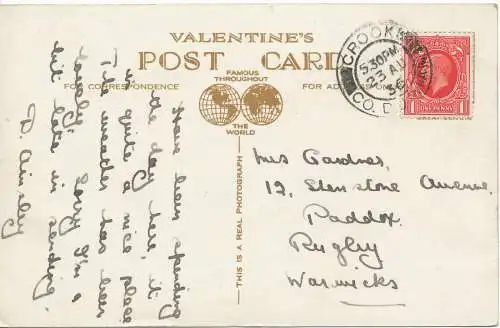 VALENTINE'S
POST CARD
FOR CORRESPONDENCE
FAMOUS
THROUGHOUT
THE WORLD
FOR ADDRESS ONLY
THIS IS A REAL PHOTOGRAPH
CROOK
5.30PM
23 AU
36
CO. D
ONE PENNY
Have been spending
the day here, it
is quite a nice place
The weather has been
lovely. Sorry I'm a
bit late in
sending.
D. Ainsley
Mrs Gardner,
12, Avenue,
Paddox,
Rugby
Warwicks